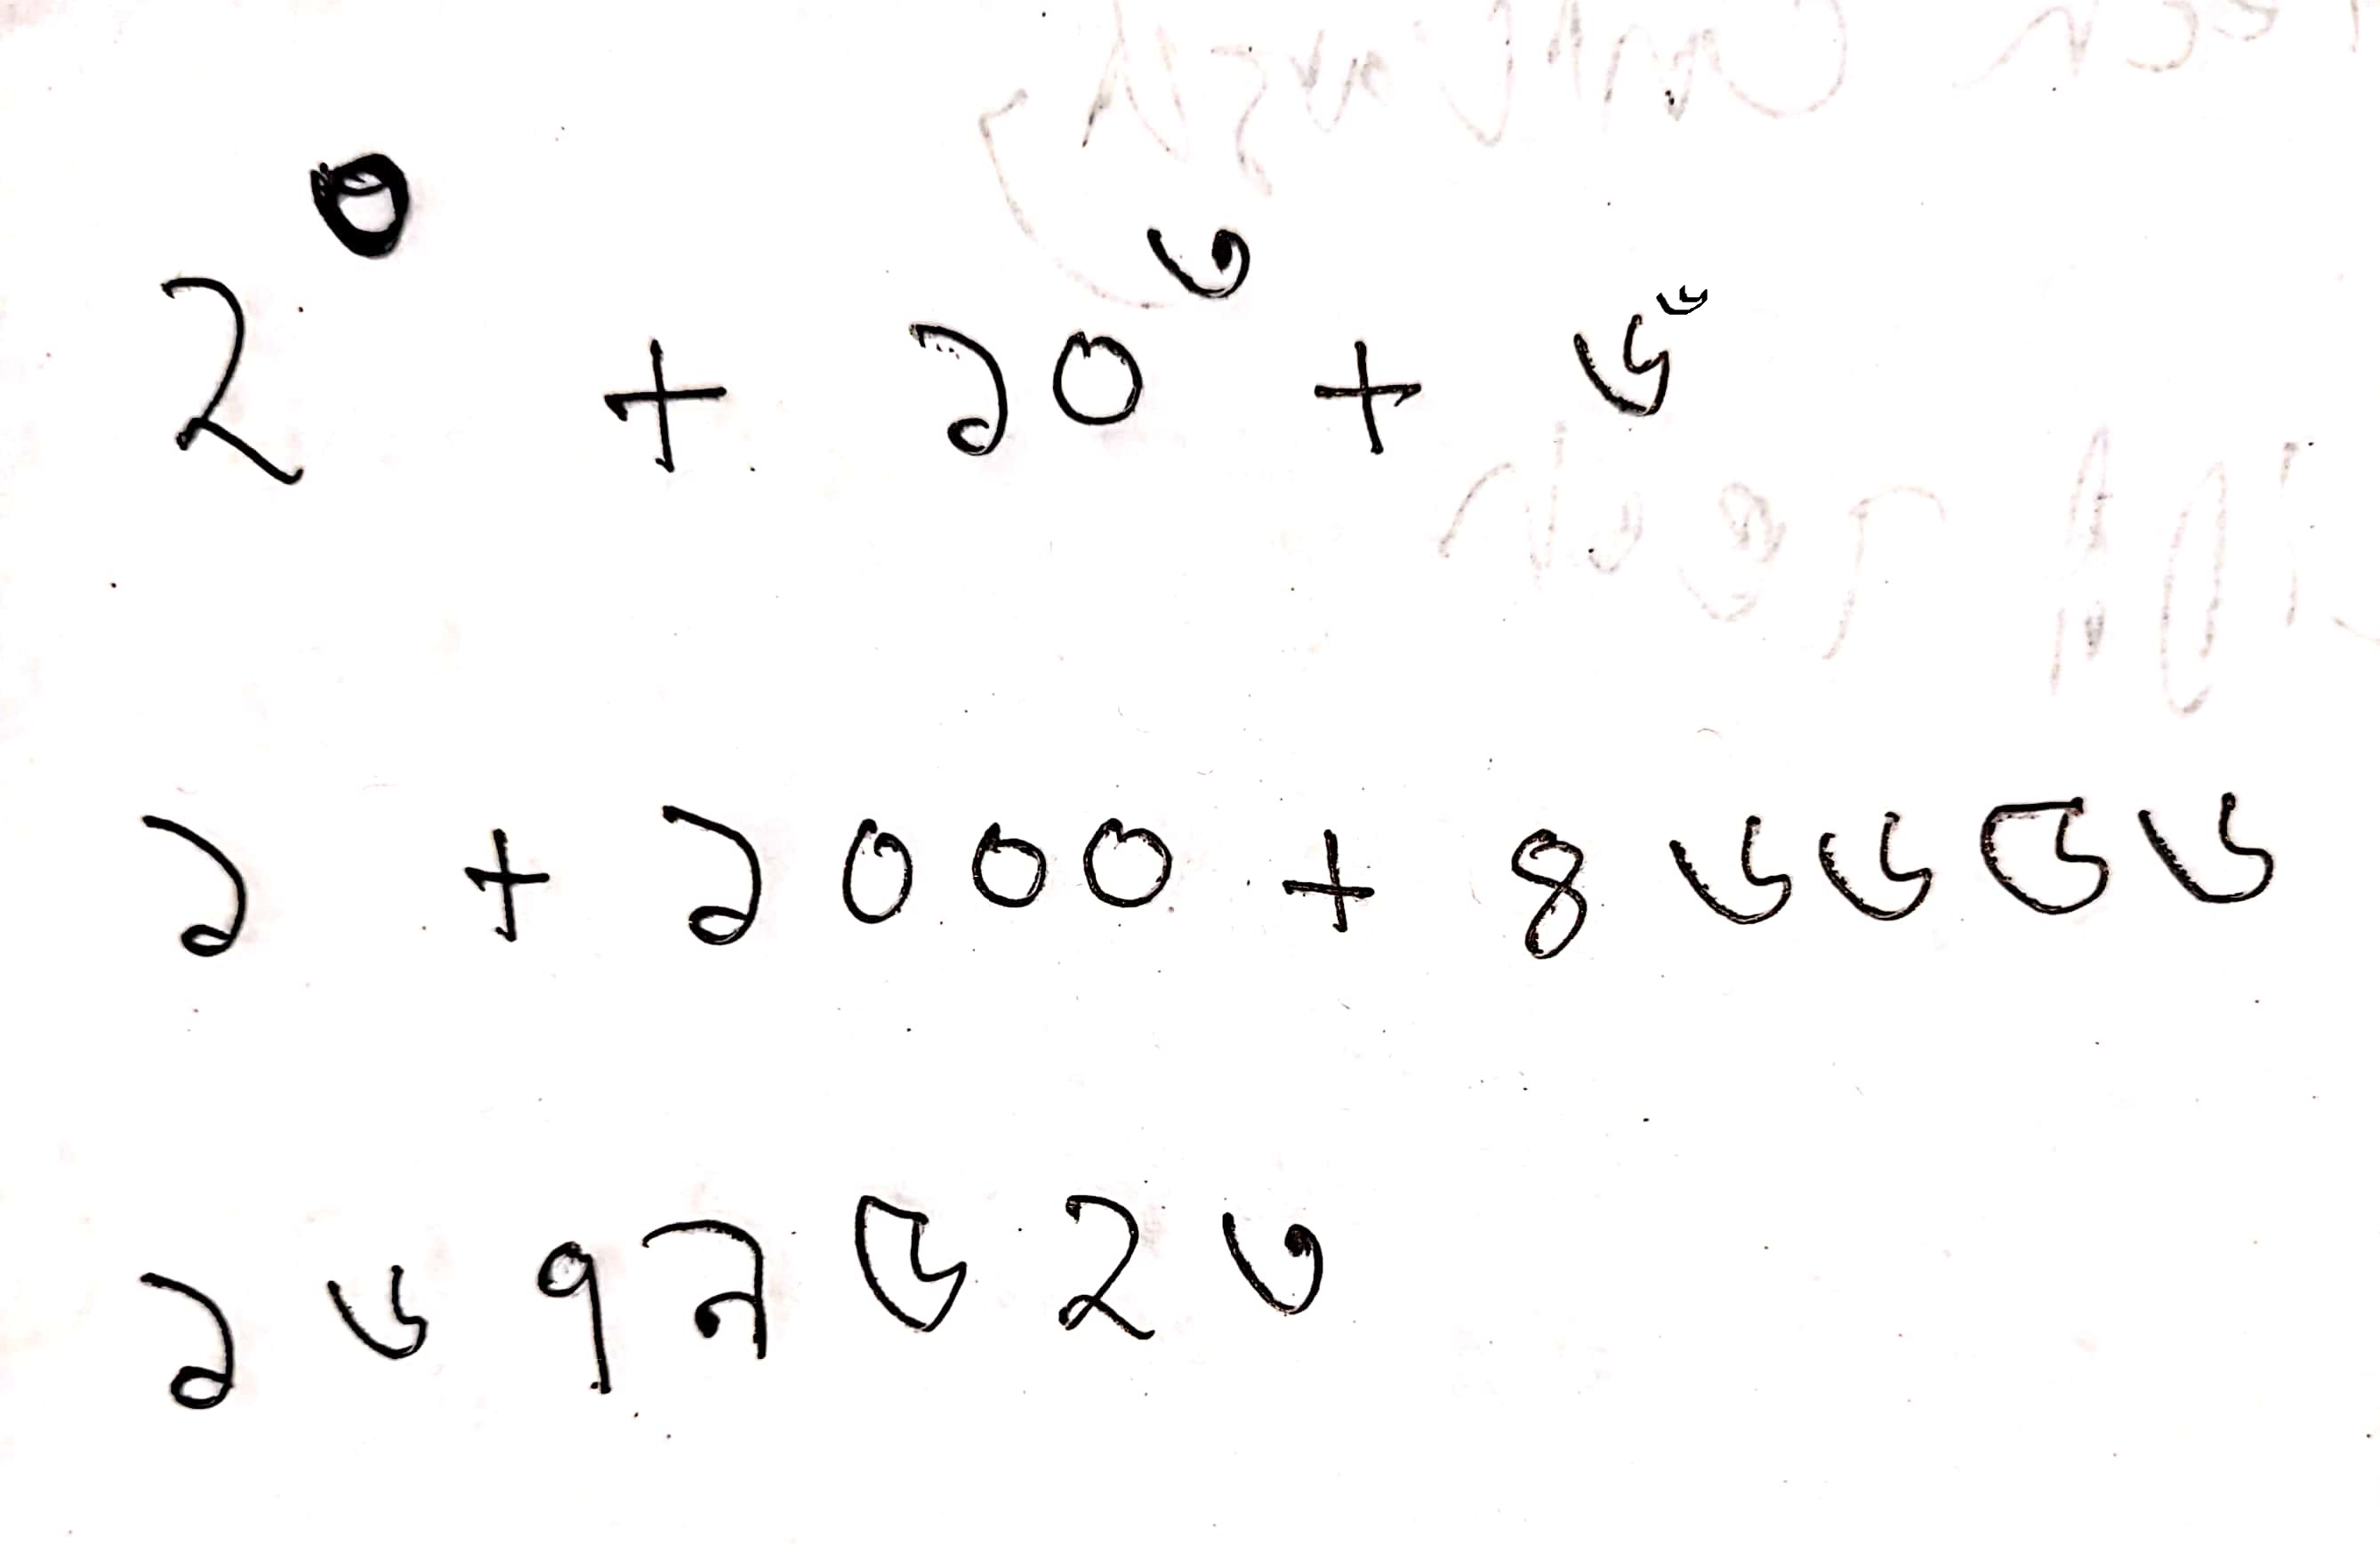 ২^০ + ১০^৩ + ৬^৬
১ + ১০০০ + ৪৬৬৫৬
১৬৭৯৫২৩